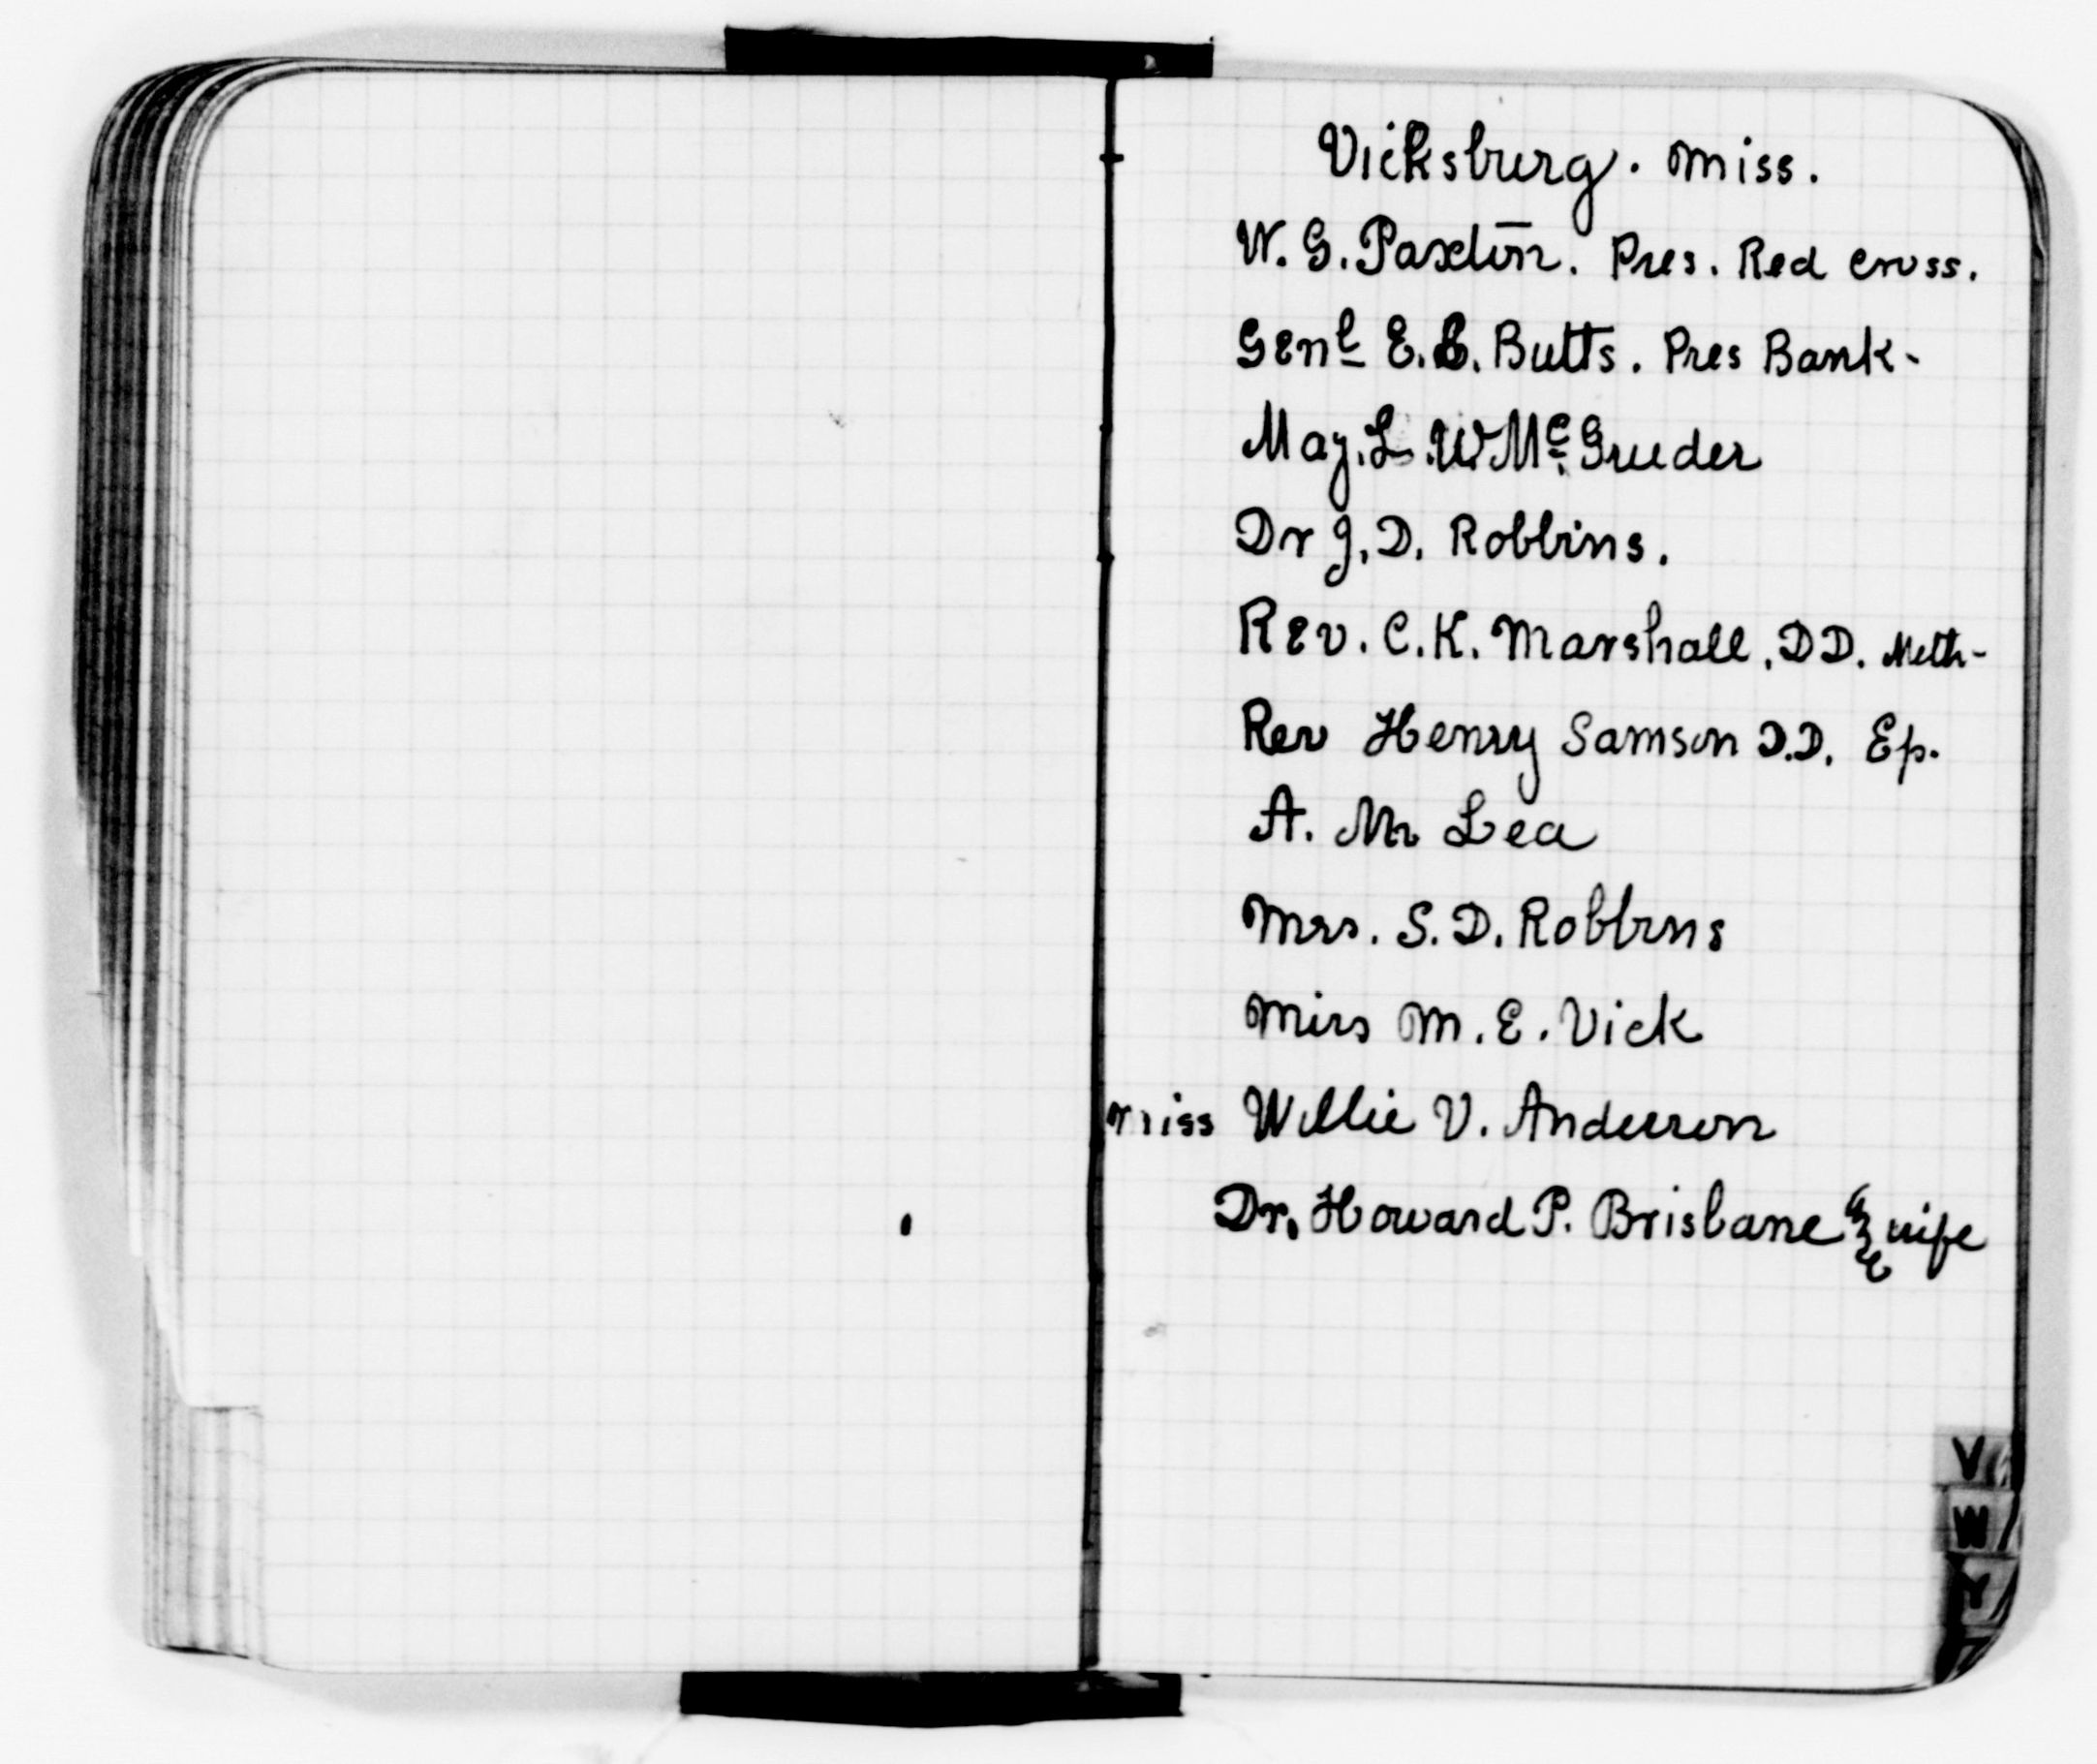 Vicksburg. Miss.
W. G. Paxton. Pres. Red Cross.
Genl E. S. Butts. Pres Bank-
Maj. L. W Mc Gruder
Dr J. D. Robbins.
Rev. C. K. Marshall, DD. Meth-
Rev Henry Samson D.D. Ep.
A. M Lea
Mrs. S. D. Robbins
Miss M. E. Vick
Miss Willie V. Anderson
Dr. Howard P. Brisbane & wife
V
W
Y